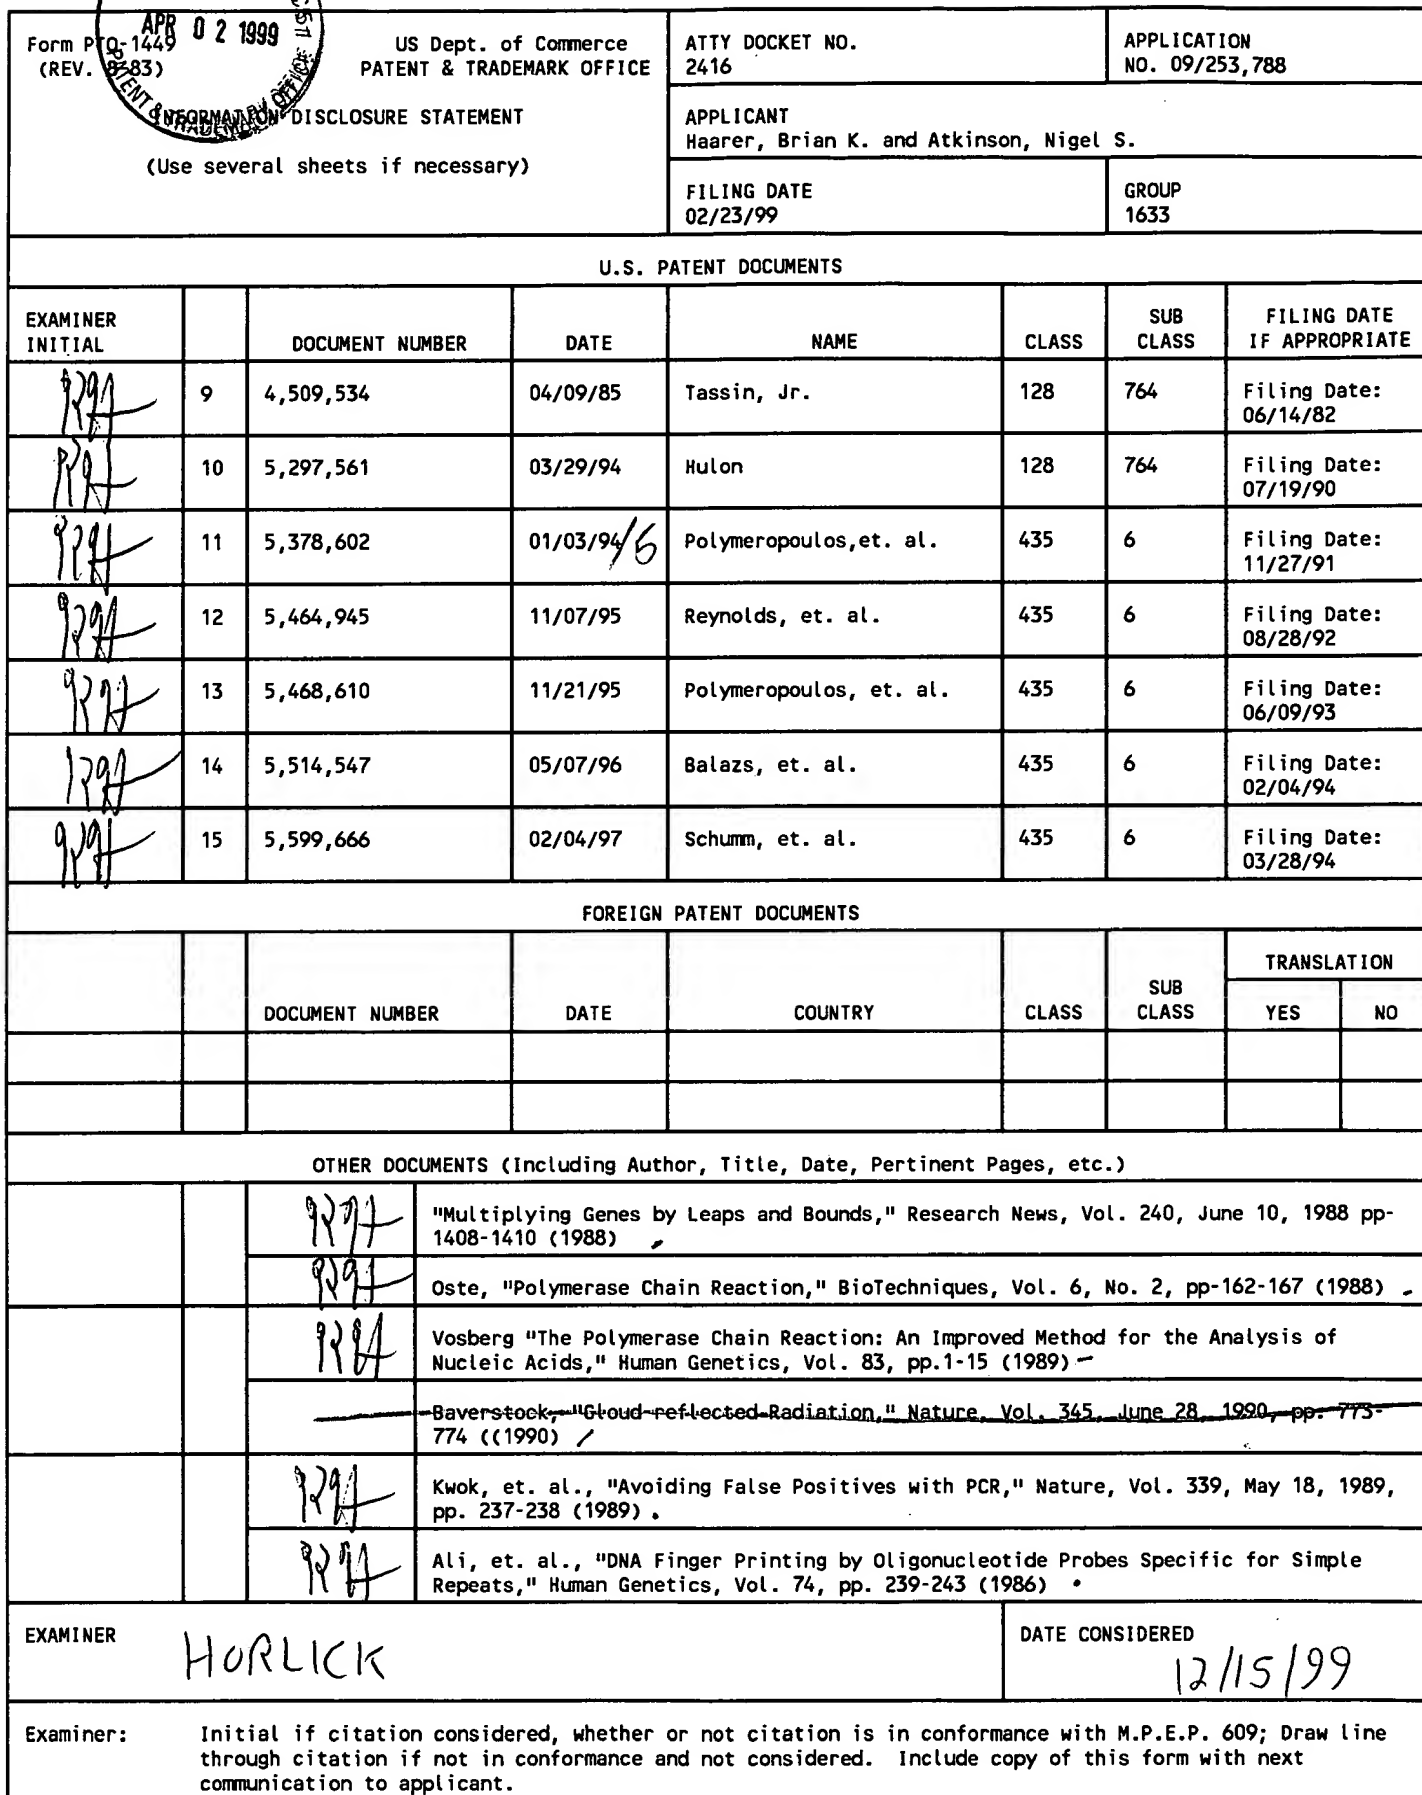 APR 02 1999
PATENT & TRADEMARK OFFICE
Form PTO-1449
(REV. 8-83)
US Dept. of Commerce
PATENT & TRADEMARK OFFICE
INFORMATION DISCLOSURE STATEMENT
(Use several sheets if necessary)
ATTY DOCKET NO.
2416
APPLICATION
NO. 09/253,788
APPLICANT
Haarer, Brian K. and Atkinson, Nigel S.
FILING DATE
02/23/99
GROUP
1633
U.S. PATENT DOCUMENTS
EXAMINER
INITIAL
DOCUMENT NUMBER
DATE
NAME
CLASS
SUB
CLASS
FILING DATE
IF APPROPRIATE
9 4,509,534 04/09/85 Tassin, Jr. 128 764 Filing Date:
06/14/82
10 5,297,561 03/29/94 Hulon 128 764 Filing Date:
07/19/90
11 5,378,602 01/03/94/5 Polymeropoulos,et. al. 435 6 Filing Date:
11/27/91
12 5,464,945 11/07/95 Reynolds, et. al. 435 6 Filing Date:
08/28/92
13 5,468,610 11/21/95 Polymeropoulos, et. al. 435 6 Filing Date:
06/09/93
14 5,514,547 05/07/96 Balazs, et. al. 435 6 Filing Date:
02/04/94
15 5,599,666 02/04/97 Schumm, et. al. 435 6 Filing Date:
03/28/94
FOREIGN PATENT DOCUMENTS
DOCUMENT NUMBER
DATE
COUNTRY
CLASS
SUB
CLASS
TRANSLATION
YES
NO
OTHER DOCUMENTS (Including Author, Title, Date, Pertinent Pages, etc.)
"Multiplying Genes by Leaps and Bounds," Research News, Vol. 240, June 10, 1988 pp-
1408-1410 (1988)
Oste, "Polymerase Chain Reaction," BioTechniques, Vol. 6, No. 2, pp-162-167 (1988)
Vosberg "The Polymerase Chain Reaction: An Improved Method for the Analysis of
Nucleic Acids," Human Genetics, Vol. 83, pp.1-15 (1989)
Baverstock, "Cloud-reflected Radiation," Nature, Vol. 345, June 28, 1990, pp. 773-
774 ((1990)
Kwok, et. al., "Avoiding False Positives with PCR," Nature, Vol. 339, May 18, 1989,
pp. 237-238 (1989).
Ali, et. al., "DNA Finger Printing by Oligonucleotide Probes Specific for Simple
Repeats," Human Genetics, Vol. 74, pp. 239-243 (1986)
EXAMINER
HORLICK
DATE CONSIDERED
12/15/99
Examiner: Initial if citation considered, whether or not citation is in conformance with M.P.E.P. 609; Draw line
through citation if not in conformance and not considered. Include copy of this form with next
communication to applicant.